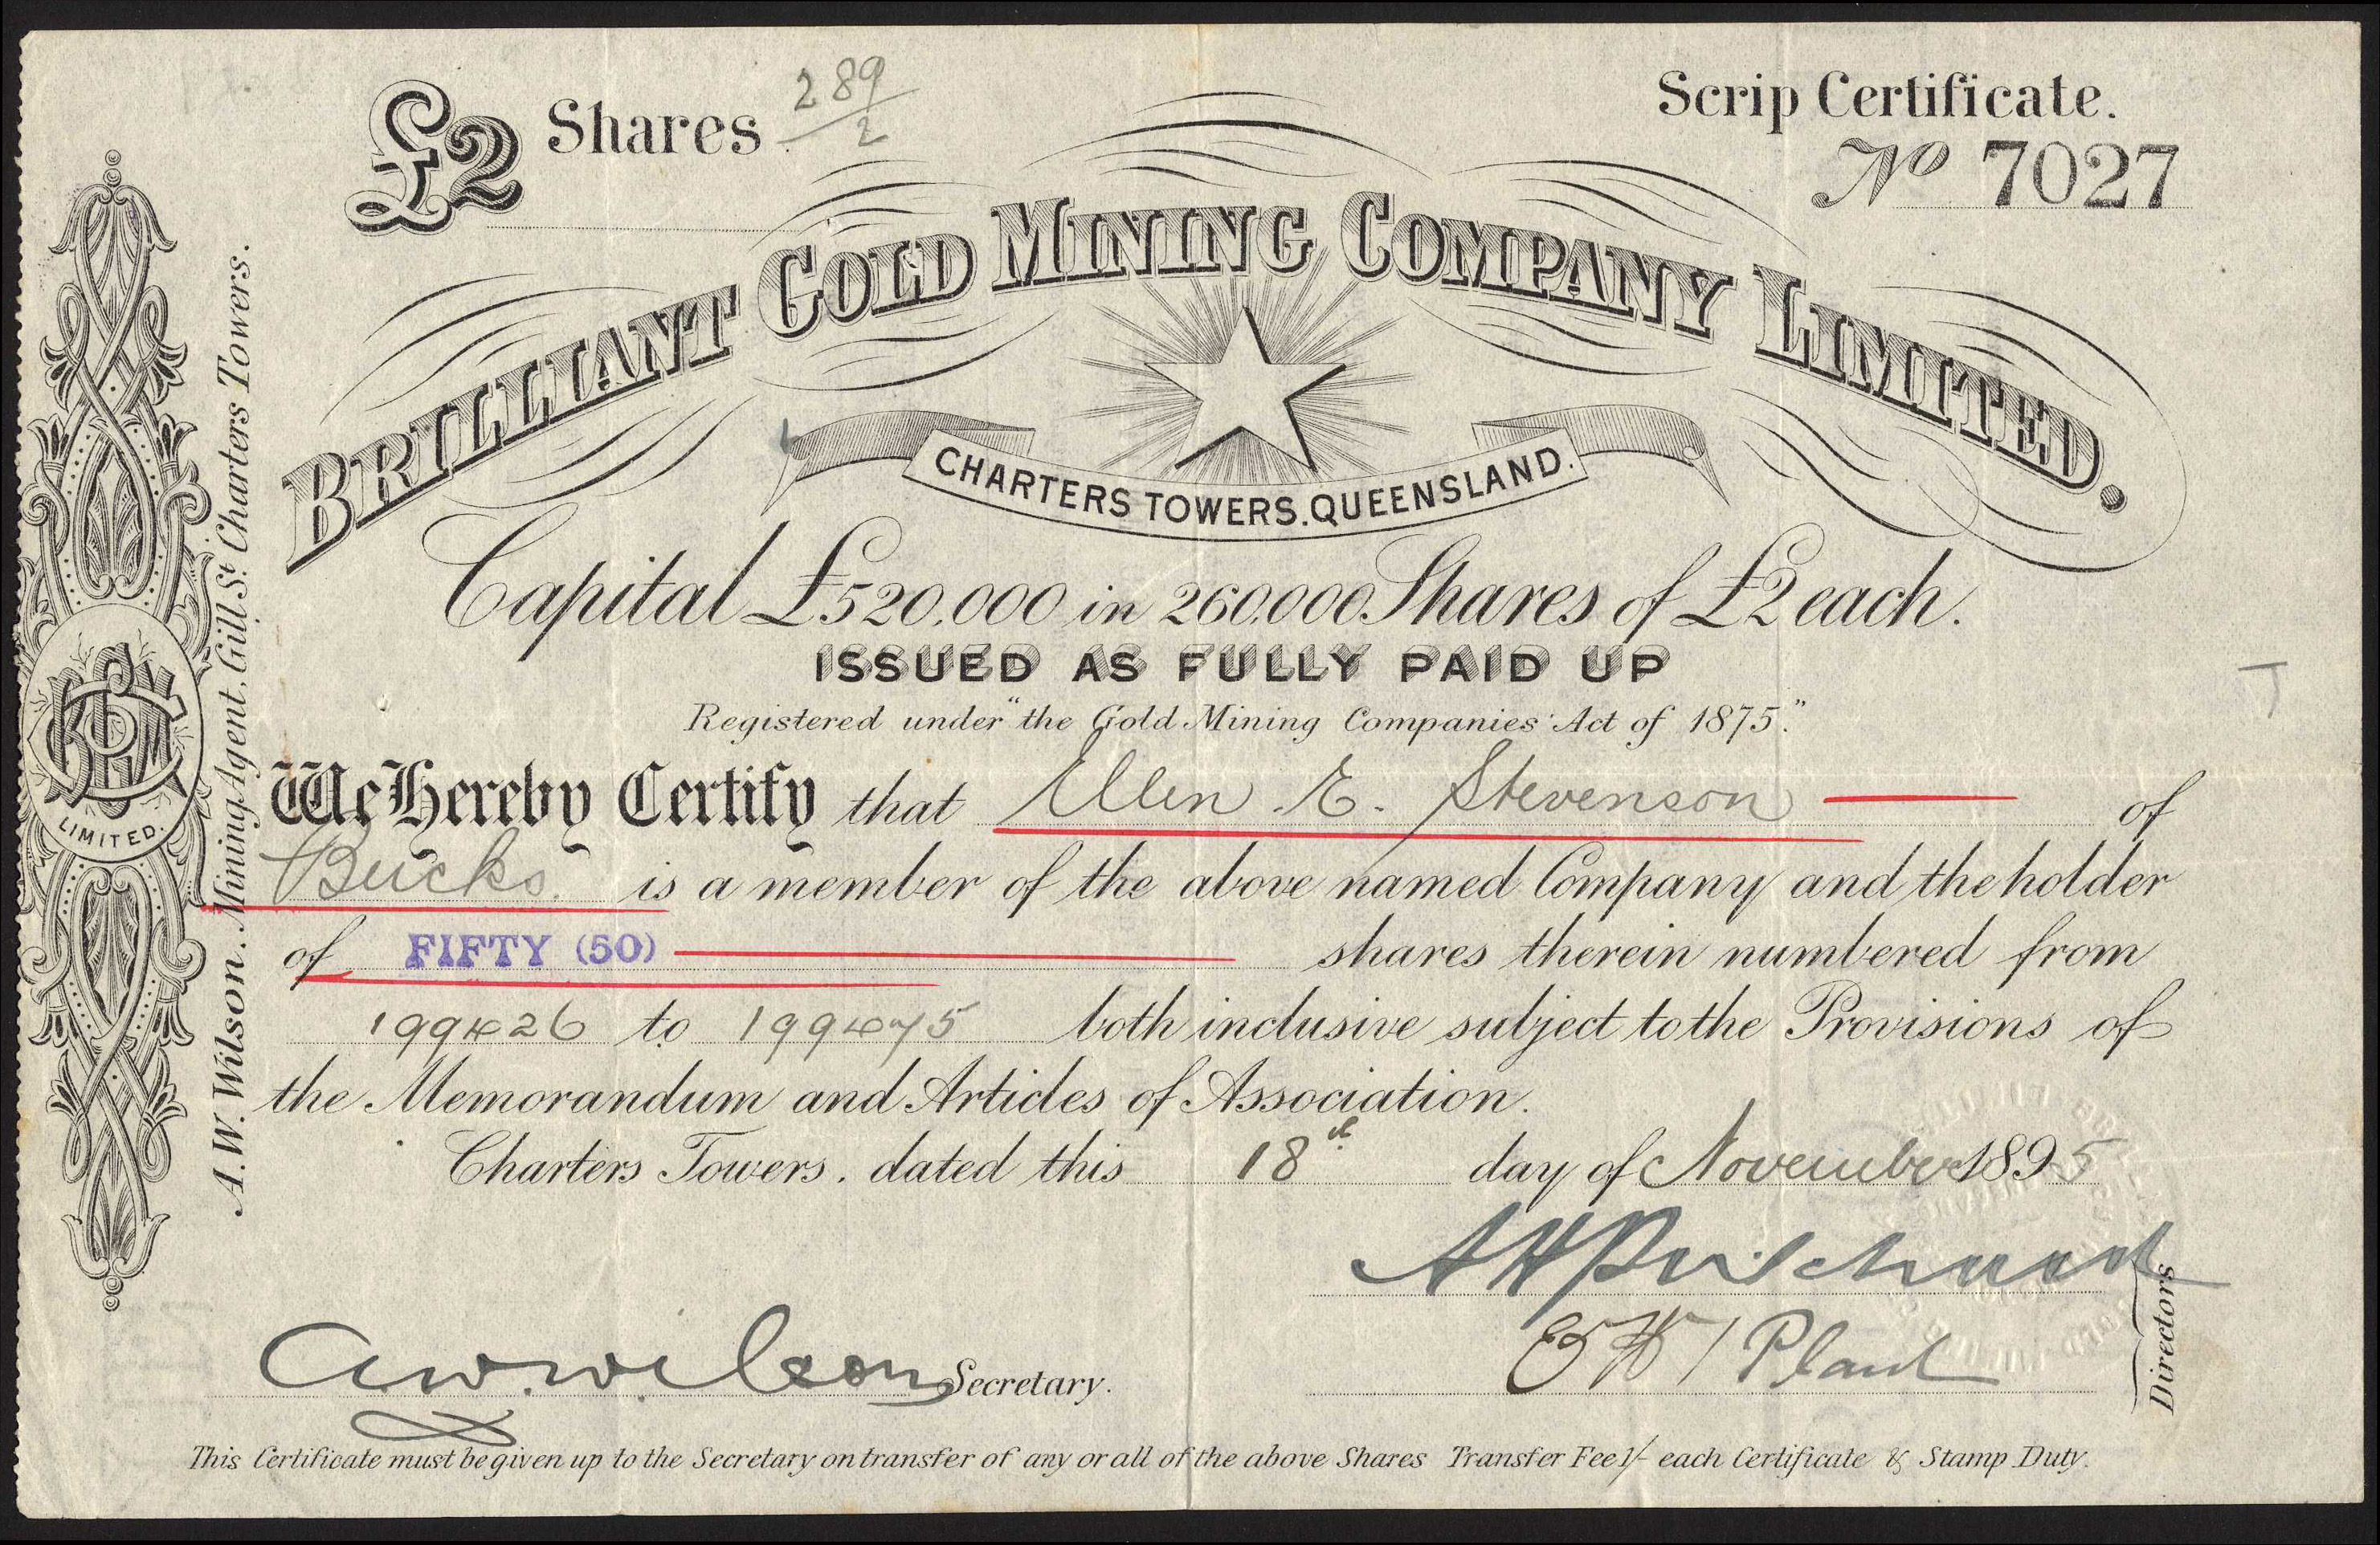 £2 Shares 289/2
Scrip Certificate.
No 7027
BRILLIANT GOLD MINING COMPANY LIMITED.
CHARTERS TOWERS. QUEENSLAND.
Capital £520.000 in 260.000 Shares of £2 each.
ISSUED AS FULLY PAID UP
Registered under "the Gold Mining Companies' Act of 1875."
We Hereby Certify that Ellen E. Stevenson of
Bucks. is a member of the above named Company and the holder
of FIFTY (50) shares therein numbered from
199426 to 199475 both inclusive subject to the Provisions of
the Memorandum and Articles of Association.
Charters Towers. dated this 18th day of November 1895
A H Pritchard
E H T Plant
Directors
A.W. Wilson Secretary.
This Certificate must be given up to the Secretary on transfer of any or all of the above Shares Transfer Fee 1/- each Certificate & Stamp Duty.
A.W. Wilson. Mining Agent. Gill St. Charters Towers.
LIMITED.